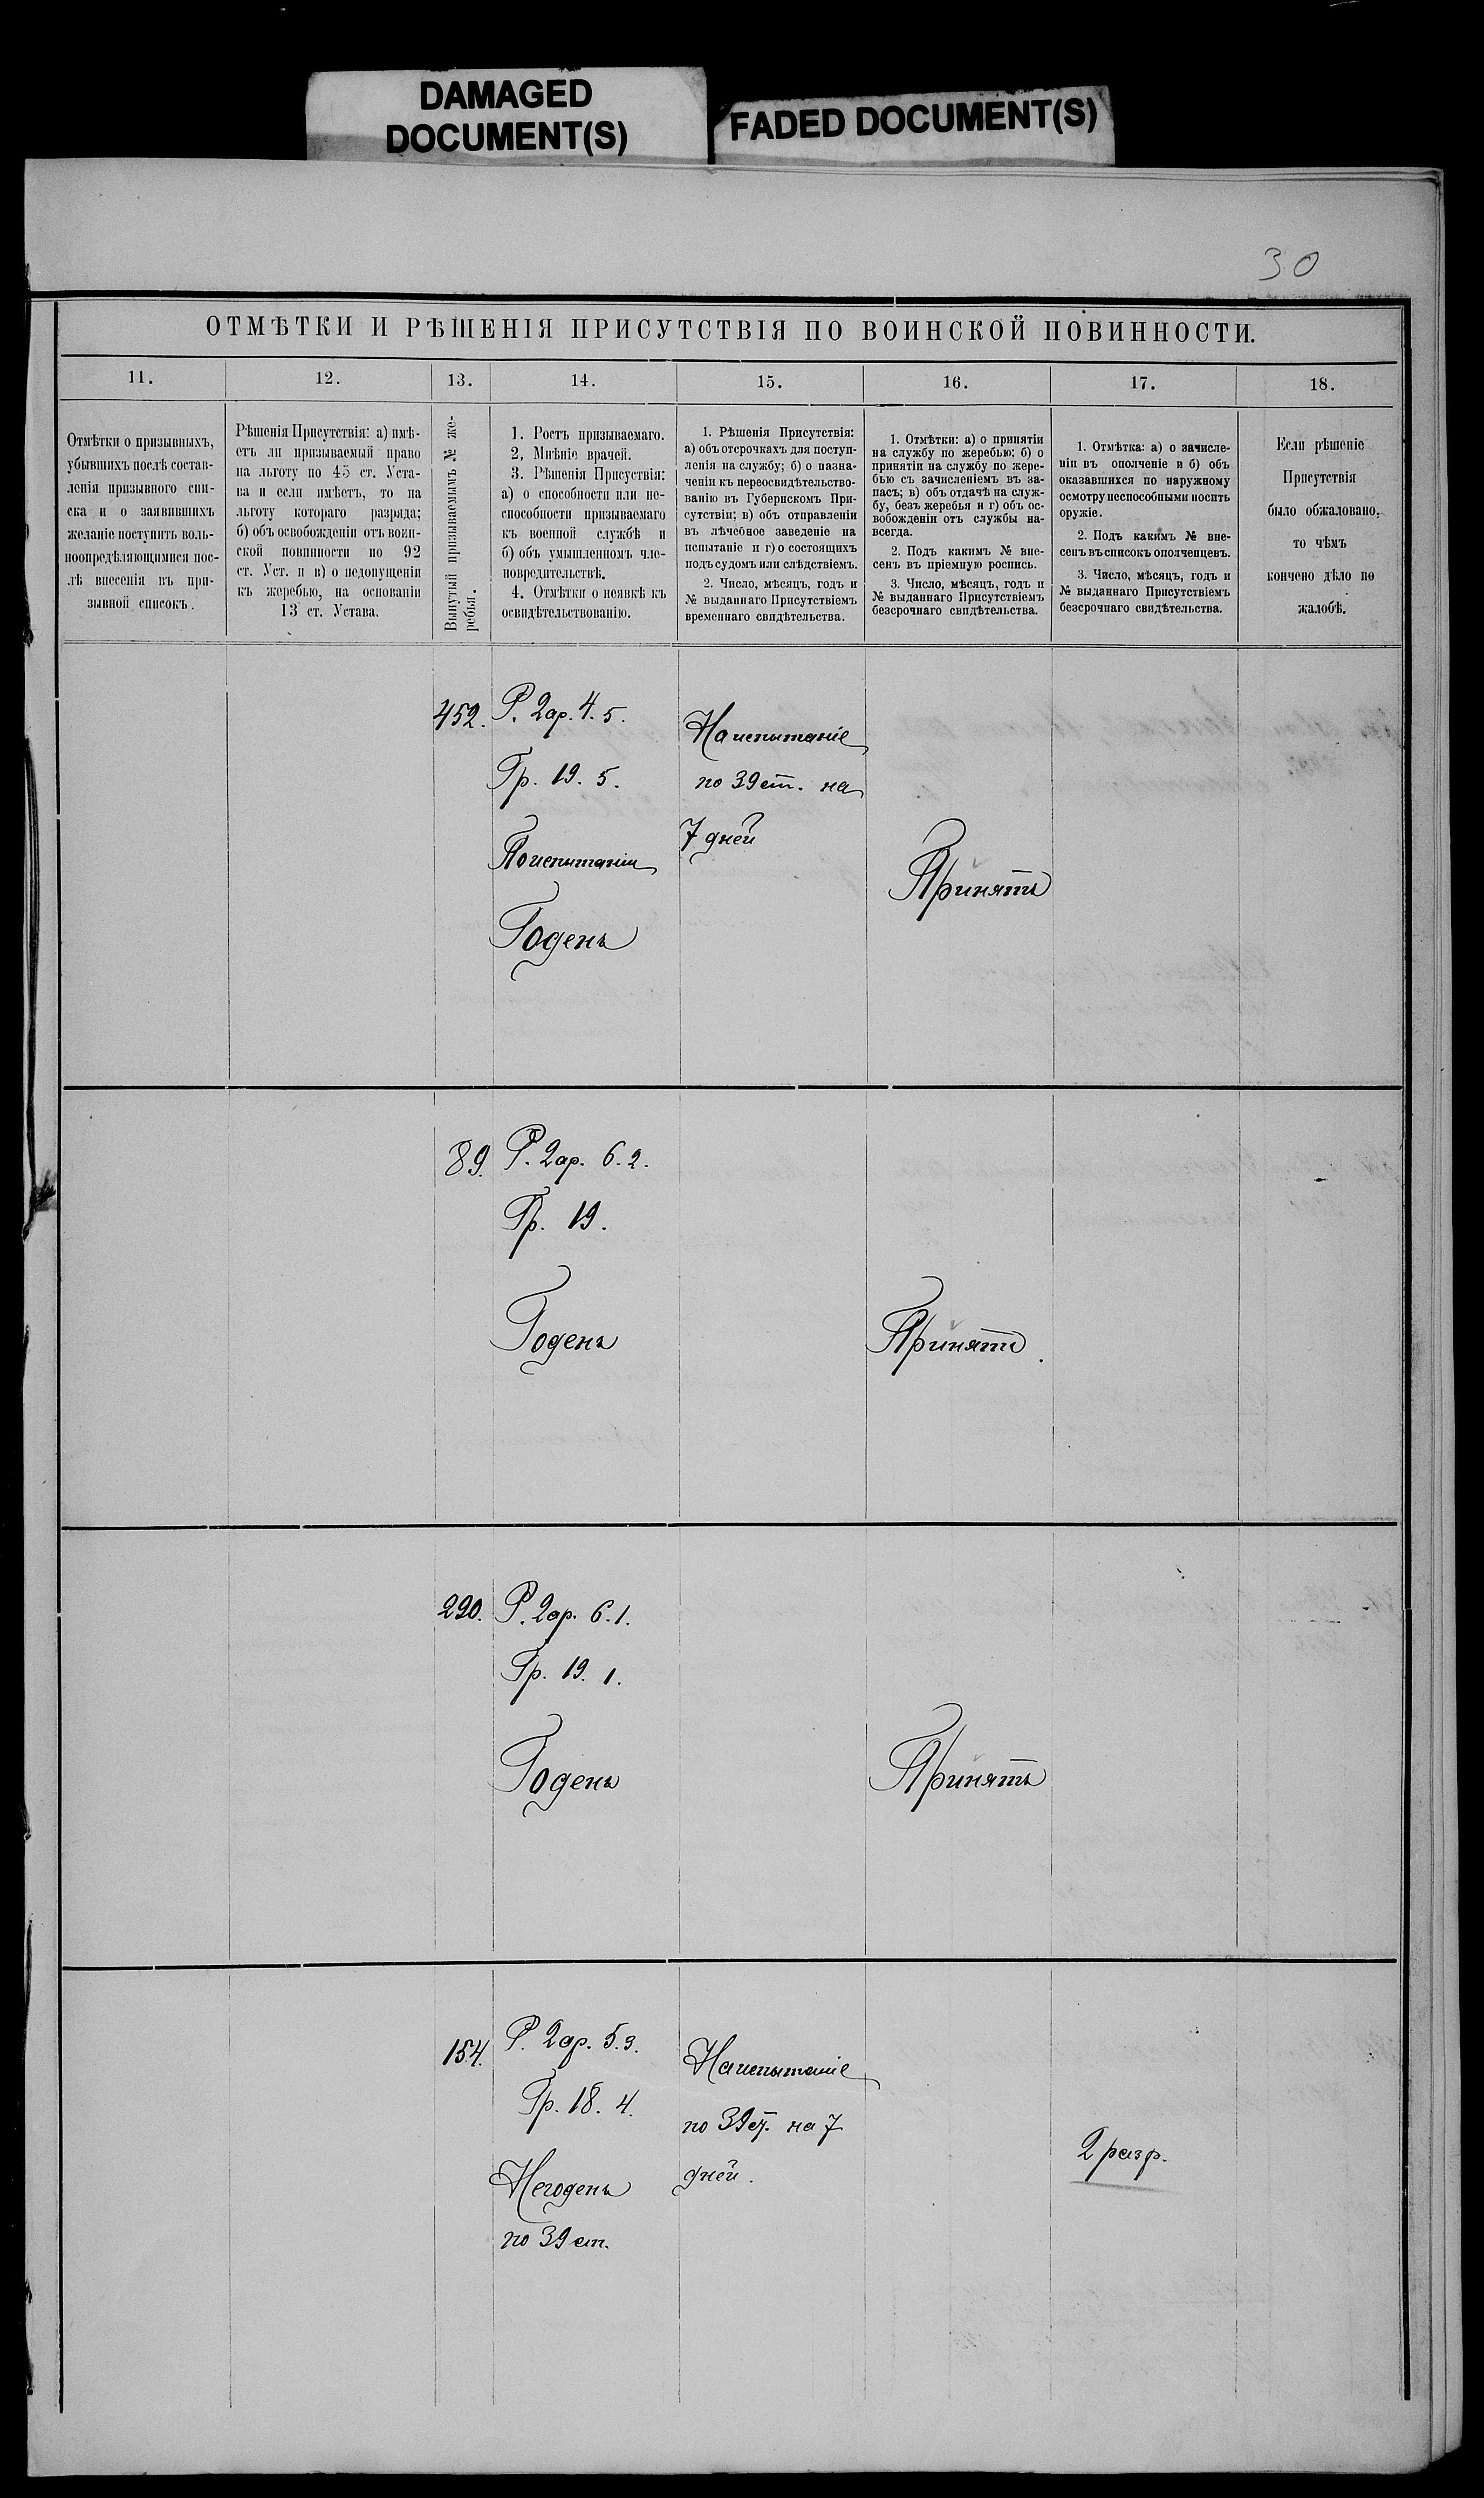 DAMAGED
DOCUMENT(S)
FADED DOCUMENT(S)
30
ОТМѢТКИ И РѢШЕНІЯ ПРИСУТСТВІЯ ПО ВОИНСКОЙ ПОВИННОСТИ.
11.
12.
13.
14.
15.
16.
17.
18.
Отмѣтки о призывныхъ,
убывшихъ послѣ состав-
ленія призывного спи-
ска и о заявившихъ
желаніе поступить воль-
ноопредѣляющимися пос-
лѣ внесенія въ при-
зывной списокъ.
Рѣшенія Присутствія: а) имѣ-
етъ ли призываемый право
на льготу по 45 ст. Уста-
ва и если имѣетъ, то на
льготу котораго разряда;
б) объ освобожденіи отъ воин-
ской повинности по 92
ст. Уст. и в) о недопущеніи
къ жеребью, на основаніи
13 ст. Устава.
Вынутый призываемымъ № же-
ребья.
1. Ростъ призываемаго.
2. Мнѣніе врачей.
3. Рѣшенія Присуствія:
а) о способности или не-
способности призываемаго
къ военной службѣ и
б) объ умышленномъ чле-
новредительствѣ.
4. Отмѣтки о неявкѣ къ
освидѣтельствованію.
1. Рѣшенія Присутствія:
а) объ отсрочкахъ для поступ-
ленія на службу; б) о назна-
ченіи къ переосвидѣтельство-
ванію въ Губернскомъ При-
сутствіи; в) объ отправленіи
въ лѣчебное заведеніе на
испытаніе и г) о состоящихъ
подъ судомъ или слѣдствіемъ.
2. Число, мѣсяцъ, годъ и
№ выданнаго Присутствіемъ
временнаго свидѣтельства.
1. Отмѣтки: а) о принятіи
на службу по жеребью; б) о
принятіи на службу по жере-
бью съ зачисленіемъ въ за-
пасъ; в) объ отдачѣ на служ-
бу, безъ жеребья и г) объ ос-
вобожденіи отъ службы на-
всегда.
2. Подъ какимъ № вне-
сенъ въ пріемную роспись.
3. Число, мѣсяцъ, годъ и
№ выданнаго Присутствіемъ
безсрочнаго свидѣтельства.
1. Отмѣтка: а) о зачисле-
ніи въ ополченіе и б) объ
оказавшихся по наружному
осмотру неспособными носить
оружіе.
2. Подъ какимъ № вне-
сенъ въ списокъ ополченцевъ.
3. Число, мѣсяцъ, годъ и
№ выданнаго Присутствіемъ
безсрочнаго свидѣтельства.
Если рѣшеніе
Присутствія
было обжаловано,
то чѣмъ
кончено дѣло по
жалобѣ.
452.
Р. 2ар. 4. 5.
Гр. 19. 5.
По испытаніи
Годенъ
На испытаніе
по 39 ст. на
7 дней
Принятъ
89.
Р. 2ар. 6. 2.
Гр. 19.
Годенъ
Принятъ.
290.
Р. 2ар. 6. 1.
Гр. 19. 1.
Годенъ
Принятъ
154.
Р. 2ар. 5. 3.
Гр. 18. 4.
Негоденъ
по 39 ст.
На испытаніе
по 39 ст. на 7
дней.
2 разр.